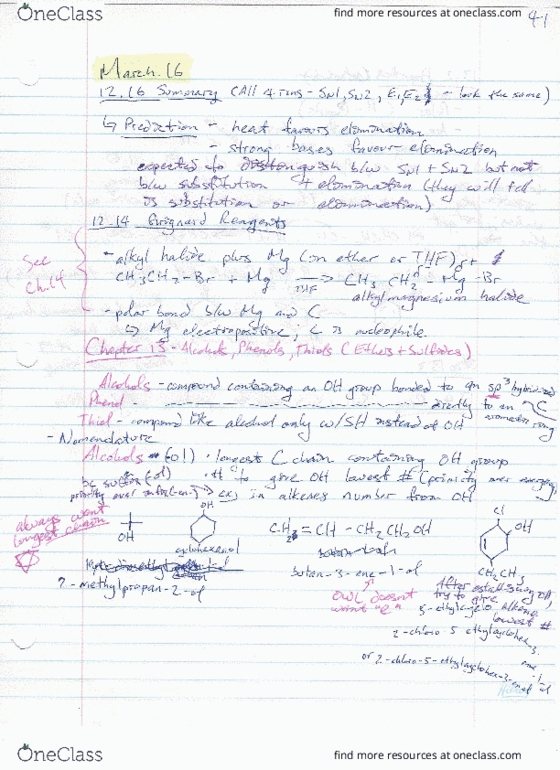 OneClass
find more resources at oneclass.com
4-1
March 16
12.16 Summary (All 4 rxns - SN1, SN2, E1, E2 - look the same)
↳ Prediction - heat favours elimination
- strong bases favour elimination
expected to distinguish b/w SN1 + SN2 but not
b/w substitution + elimination (they will tell
is substitution or elimination)
12.14 Grignard Reagents
See
Ch.14
- alkyl halide plus Mg (in ether or THF)
CH3CH2-Br + Mg → CH3CH2-Mg-Br
THF
alkylmagnesium halide
- polar bond b/w Mg and C
↳ Mg electropositive; C is nucleophile
Chapter 13 - Alcohols, Phenols, Thiols (Ethers + Sulfides)
Alcohols - compound containing an OH group bonded to an sp3 hybridized C
Phenol directly to an aromatic ring
Thiol - compound like alcohol only w/ SH instead of OH
- Nomenclature
Alcohols (-ol) • longest C chain containing OH group
• # C to give OH lowest # (priority over everything)
ex) in alkenes number from OH
bc suffix (-ol)
priority over
always want
longest chain
OH
OH
cyclohexanol
2-methylpropan-2-ol
CH2=CH-CH2CH2OH
buten-3-ene-1-ol
OWL doesn't
want "e"
Cl
OH
CH2CH3
After establishing OH,
try to give
alkene
lowest #
2-chloro-5-ethylcyclohex-3-
ene-1-ol
or 2-chloro-5-ethylcyclohex-3-enol
OneClass
find more resources at oneclass.com